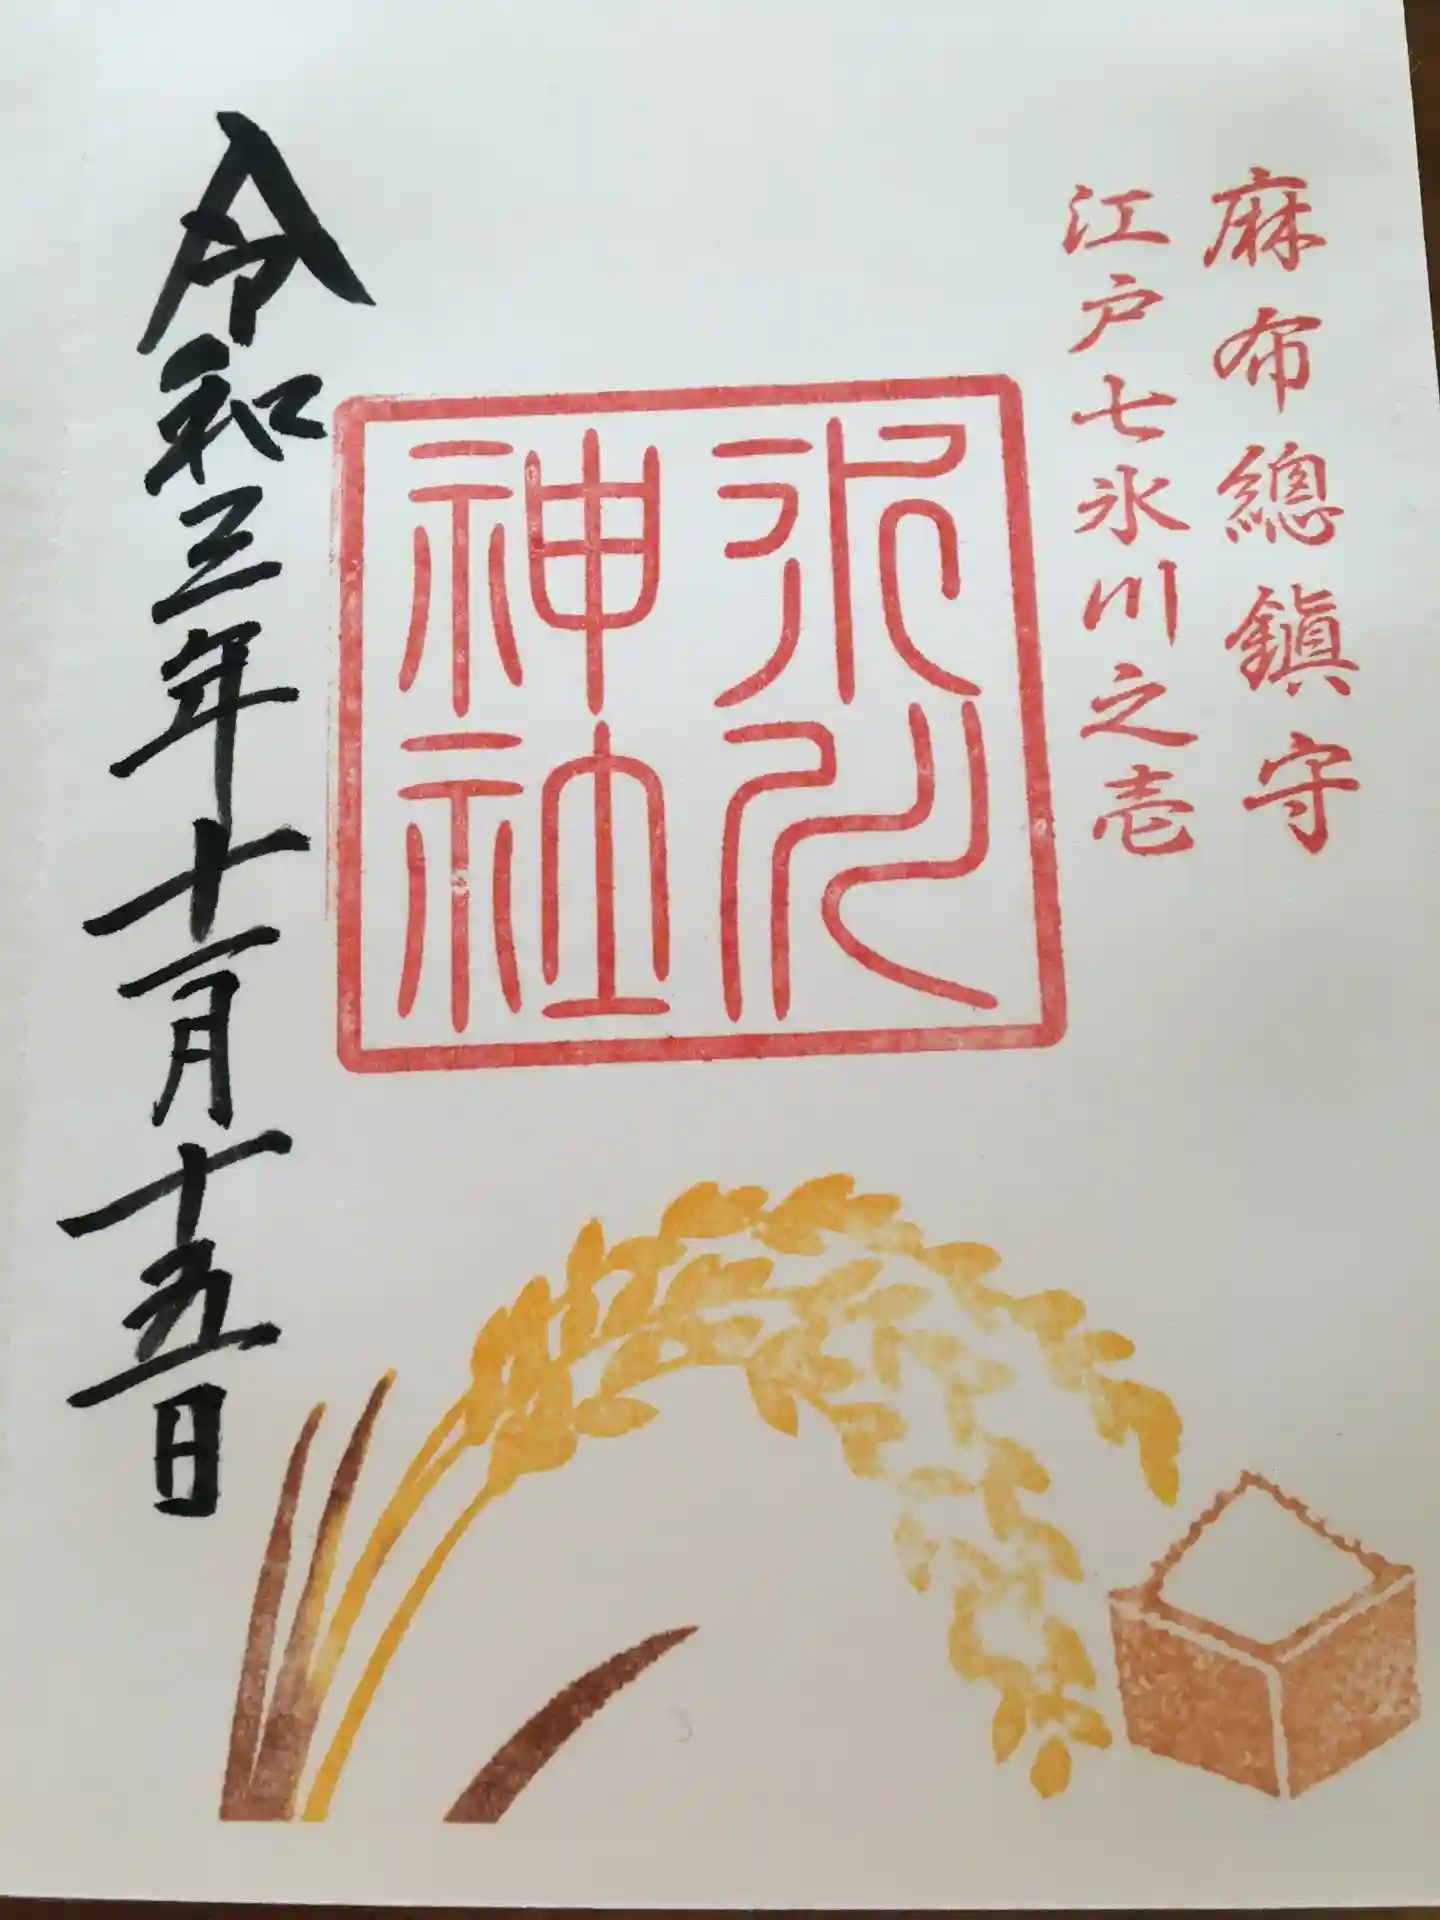 麻布總鎮守
江戸七氷川之壱
氷川
神社
令和三年十一月十五日